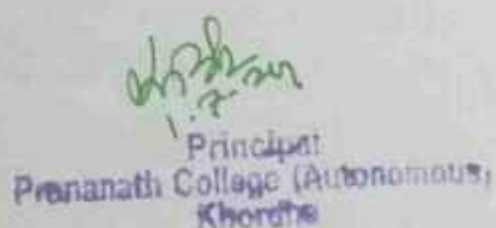 Principal
Prananath College (Autonomous)
Khordha